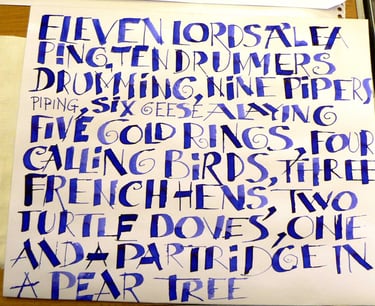 ELEVEN LORDS A LEA
PING, TEN DRUMMERS
DRUMMING, NINE PIPERS
PIPING, SIX GEESE A LAYING
FIVE GOLD RINGS, FOUR
CALLING BIRDS, THREE
FRENCH HENS, TWO
TURTLE DOVES, ONE
AND A PARTRIDGE IN
A PEAR TREE